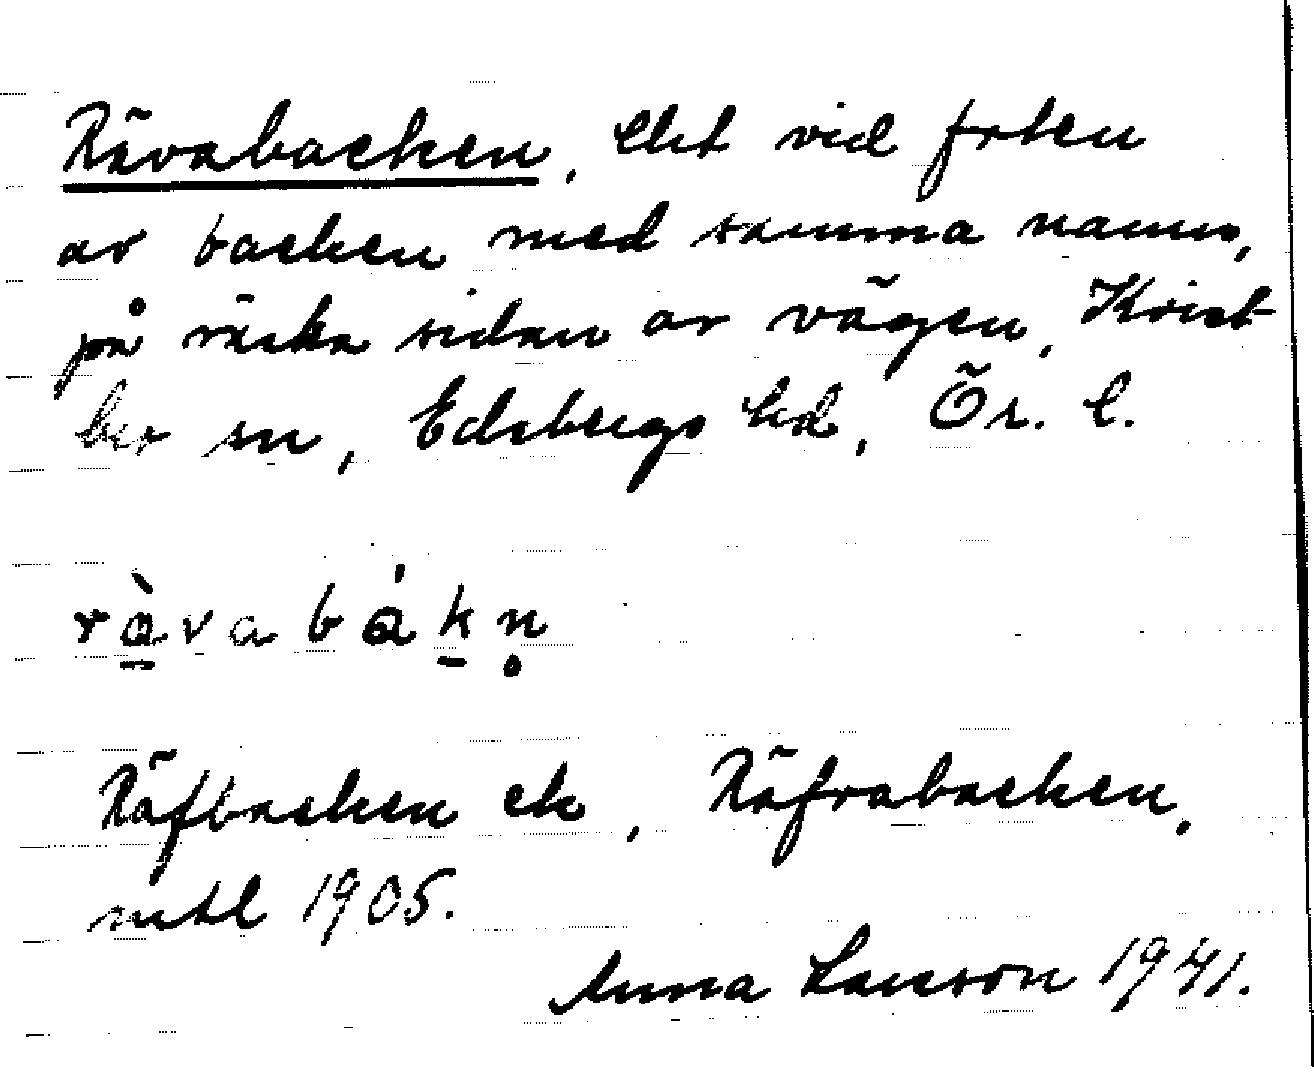 Rävabacken, lht vid foten
av backen med samma namn,
på västra sidan av vägen, Kvist-
bro sn, Edsbergs hd, Ör. l.
ràvabákṇ
Räfbacken ek, Räfvabacken,
mtl 1905.
Anna Larsson 1941.